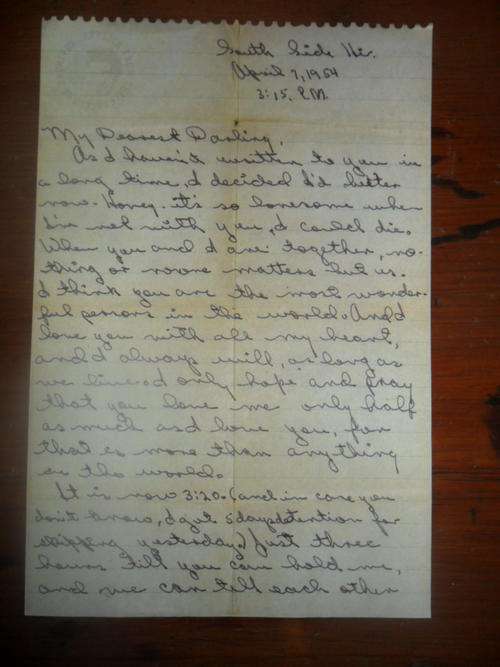 South Side Hi.
April 7, 1954
3:15, P.M.
My Dearest Darling,
As I haven't written to you in
a long time, I decided I'd better
now. Honey it's so lonesome when
I'm not with you, I could die.
When you and I are together, no-
thing or noone matters but us.
I think you are the most wonder-
ful persons in the world. And I
love you with all my heart,
and I always will, as long as
we live. I only hope and pray
that you love me only half
as much as I love you, for
that is more than anything
in the world.
It is now 3:20. (and in case you
don't know, I got 5 days detention for
skipping yesterday.) Just three
hours till you can hold me,
and we can tell each other